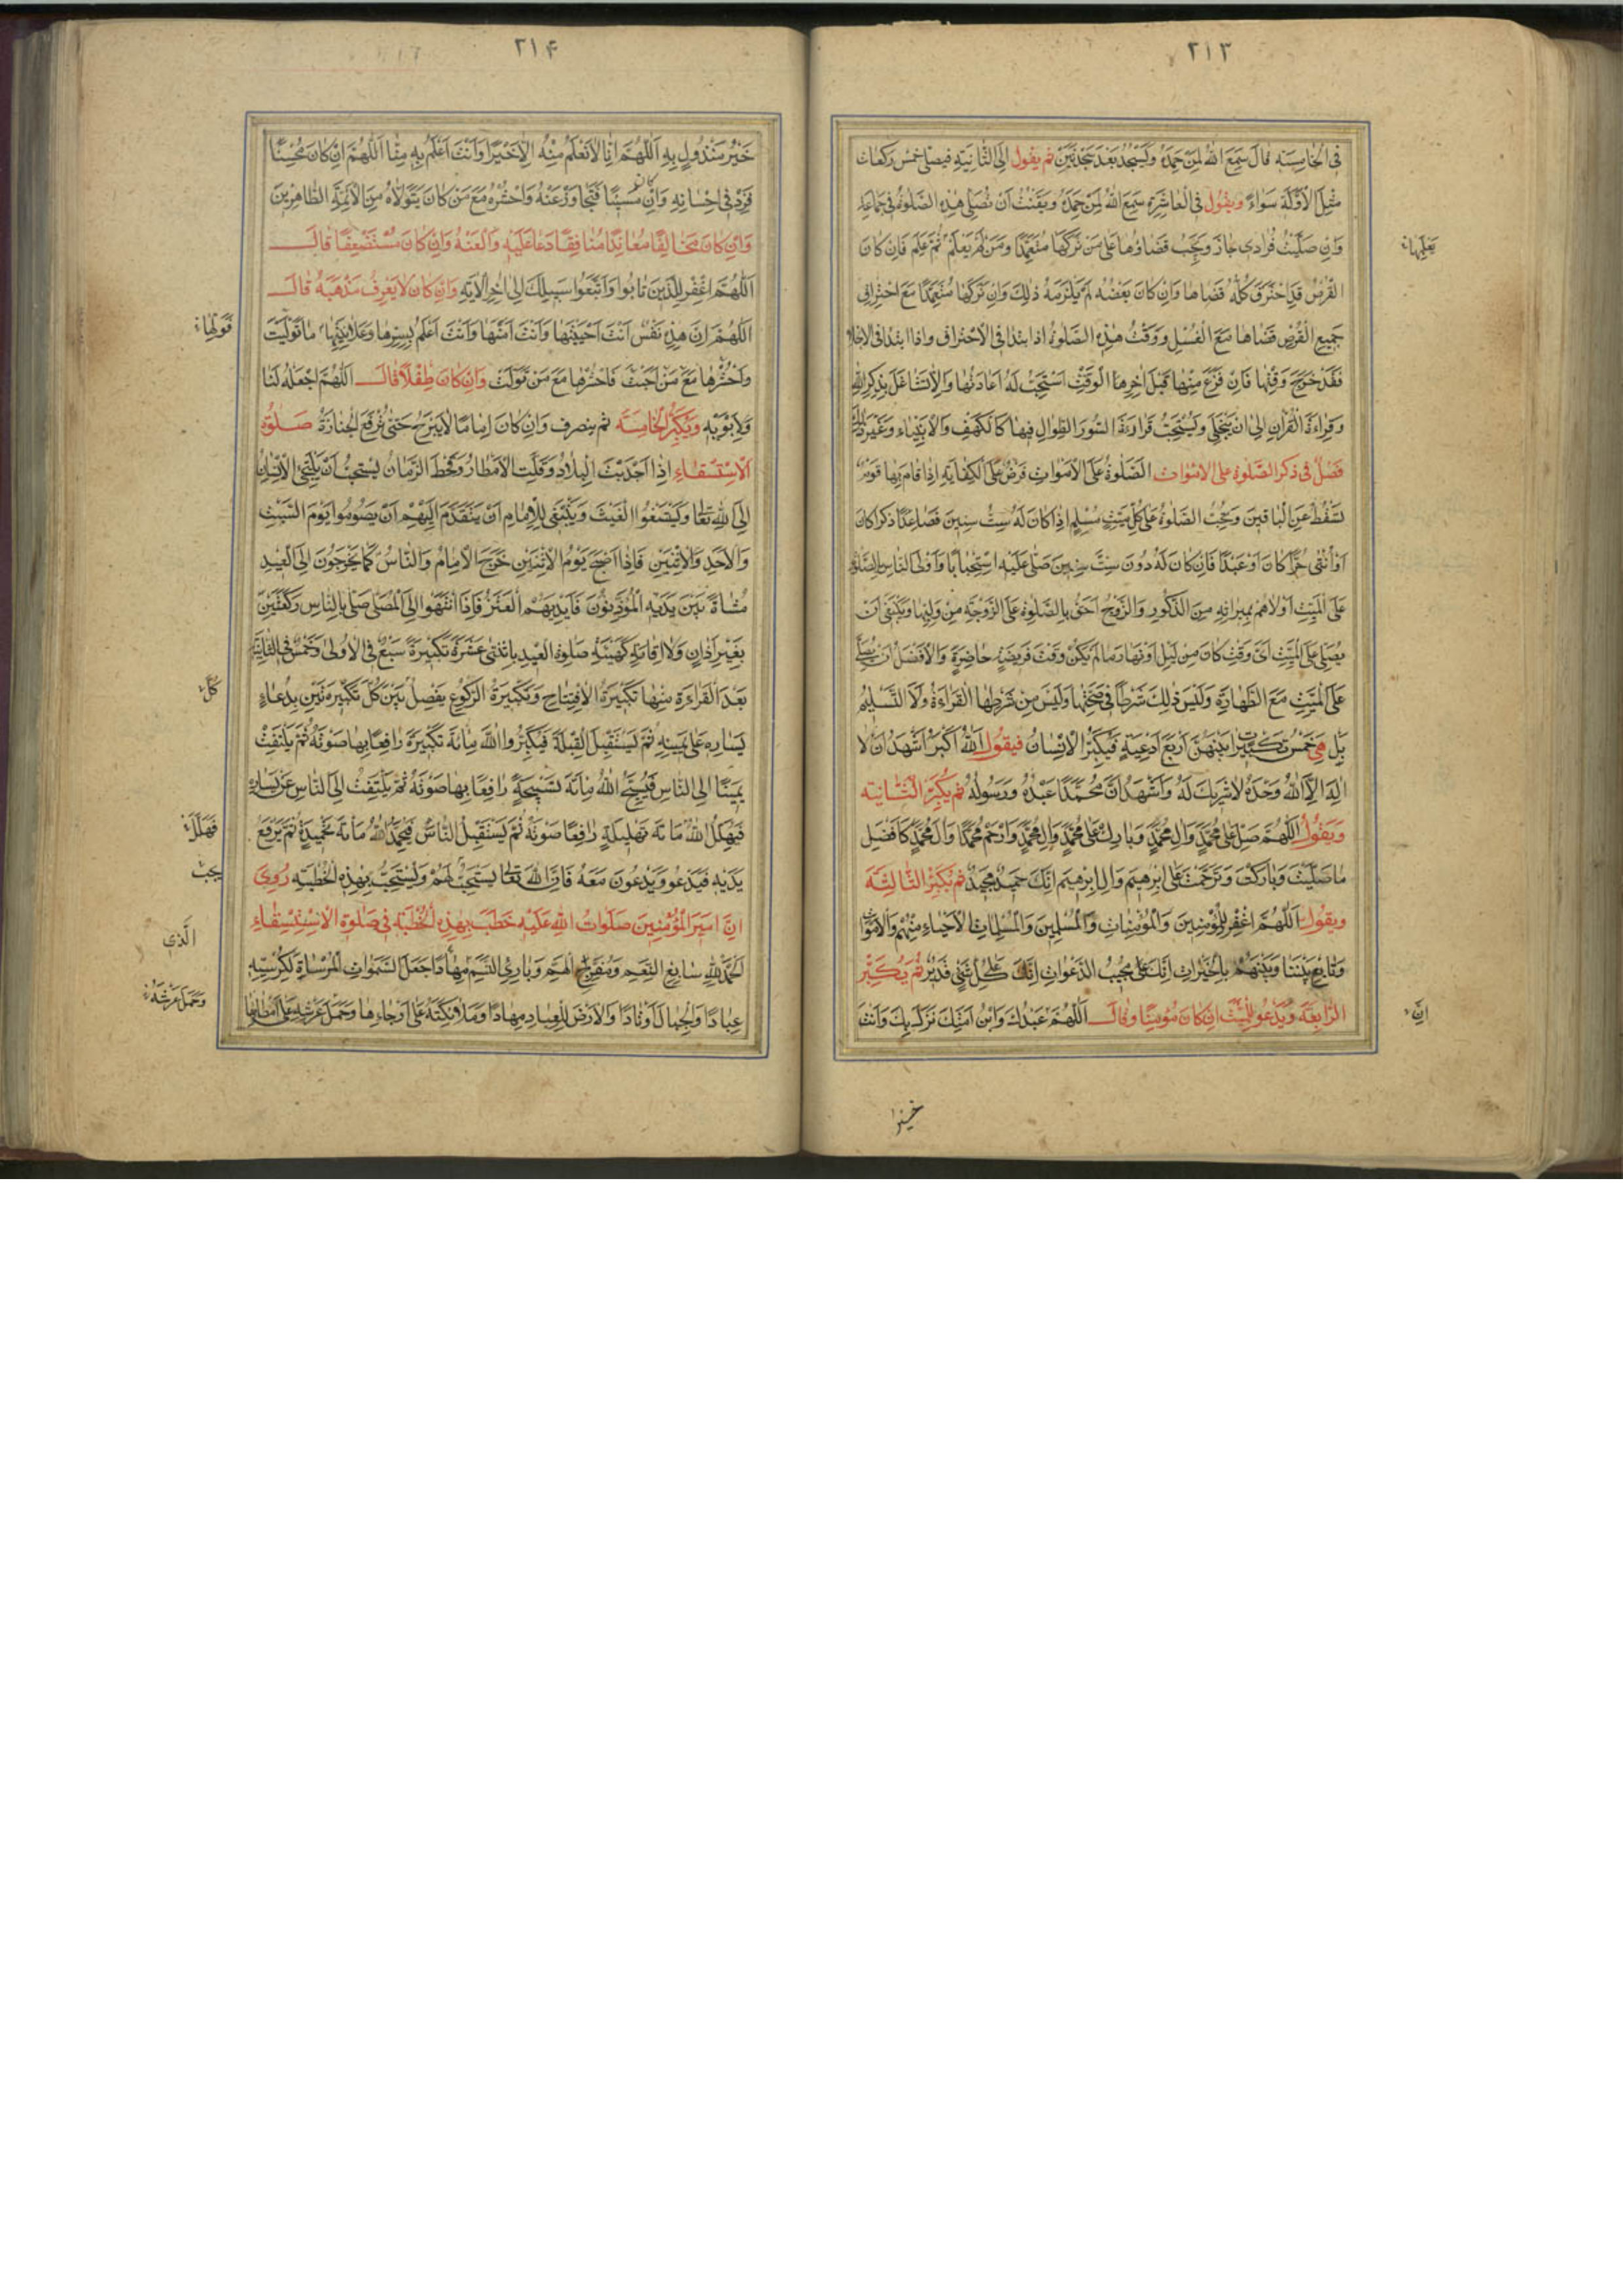 ٢١٣
في الخامسة قال سمع الله لمن حمده وليسجد بعد سجدتين ثم يقول الى الثانية فيصلى خمس ركعات
مثل الاولة سواء ويقول في العاشرة سمع الله لمن حمده ويقنت ان تصلى هذه الصلوة في جماعة
وان صليت فرادى جاز ويجب قضاؤها على من تركها متعمدا ومن لم يعلم ثم علم فان كان
القرص قد احترق كله قضاها وان كان بعضه لم يلزمه ذلك وان تركها متعمدا مع احتراق
جميع القرص قضاها مع الغسل ووقت هذه الصلوة اذا ابتدا في الاحتراق واذا ابتدا في الانجلا
فقد خرج وقتها فان فرغ منها قبل اخرها الوقت استحب له اعادتها والا تشاغل بذكر الله
وقراءة القران الى ان ينجلي ويستحب قراءة السور الطوال فيها كالكهف والانبياء وغير ذلك
فصل في ذكر الصلوة على الاموات الصلوة على الاموات فرض على الكفاية اذا قام بها قوم
سقط عن الباقين ويجب الصلوة على كل ميت مسلم اذا كان له ست سنين فصاعدا ذكرا كان
او انثى حرا كان او عبدا فان كان له دون ست سنين صلى عليه استحبابا واولى الناس بالصلوة
على الميت اولاهم بميراثه من الذكور والزوج احق بالصلوة على الزوجة من وليها ويكفى ان
يصلى على الميت اى وقت كان من ليل او نهار ما لم يكن وقت فريضة حاضرة والافضل ان يصلى
على الميت مع الطهارة وليس ذلك شرطا في صحتها وليس من شرطها القراءة ولا التسليم
بل هي خمس تكبيرات بينهن اربع ادعية فيكبر الانسان فيقول الله اكبر اشهد ان لا
اله الا الله وحده لا شريك له واشهد ان محمدا عبده ورسوله ثم يكبر الثانية
ويقول اللهم صل على محمد وال محمد وبارك على محمد وال محمد وارحم محمدا وال محمد كافضل
ما صليت وباركت وترحمت على ابرهيم وال ابرهيم انك حميد مجيد ثم يكبر الثالثة
ويقول اللهم اغفر للمؤمنين والمؤمنات والمسلمين والمسلمات الاحياء منهم والاموات
وتابع بيننا وبينهم بالخيرات انك مجيب الدعوات انك على كل شئ قدير ثم يكبر
الرابعة ويدعو للميت ان كان مؤمنا وقال اللهم عبدك وابن امتك نزل بك وانت
خير
ان
٢١۴
خير منزول به اللهم انا لا نعلم منه الا خيرا وانت اعلم به منا اللهم ان كان محسنا
فزد في احسانه وان كان مسيئا فتجاوز عنه واحشره مع من كان يتولاه من الائمة الطاهرين
وان كان مخالفا معاندا منافقا دعا عليه والعنه وان كان مستضعفا قال
اللهم اغفر للذين تابوا واتبعوا سبيلك الى اخر الاية وان كان لا يعرف مذهبه قال
اللهم ان هذه نفس انت احييتها وانت امتها وانت اعلم بسرها وعلانيتها ما تولت
واحشرها مع من احبت فاحشرها مع من تولت وان كان طفلا قال اللهم اجعله لنا
ولابويه ويكبر الخامسة ثم ينصرف وان كان اماما لا يبرح حتى ترفع الجنازة صلوة
الاستسقاء اذا اجدبت البلاد وقلت الامطار وقحط الزمان يستحب ان يلتجئ الانسان
الى الله تعالى ويستغفروا الغيث وينبغى للامام ان يتقدم اليهم ان يصوموا يوم السبت
والاحد والاثنين فاذا اصبح يوم الاثنين خرج الامام والناس كما يخرجون الى العيد
مشاة بين يديه المؤذنون فايديهم العنز فاذا انتهوا الى المصلى صلى بالناس ركعتين
بغير اذان ولا اقامة كهيئة صلوة العيد باثنتى عشرة تكبيرة سبع في الاولى وخمس في الثانية
بعد القراءة منها تكبيرة الافتتاح وتكبيرة الركوع يفصل بين كل تكبيرتين بدعاء
يساره على يمينه ثم يستقبل القبلة فيكبروا الله مائة تكبيرة رافعا بها صوته ثم يلتفت
يمينا الى الناس فيسبح الله مائة تسبيحة رافعا بها صوته ثم يلتفت الى الناس عن يساره
فيهلل الله مائة تهليلة رافعا صوته ثم يستقبل الناس فيحمد الله مائة تحميدة ثم يرفع
يديه فيدعو ويدعون معه فان الله تعالى يستجيب لهم ويستحب بهذه الخطبة روى
ان امير المؤمنين صلوات الله عليه خطب بهذه الخطبة في صلوة الاستسقاء
الحمد لله سابغ النعم ومفرج الهم وبارئ النسم مهادا جعل السموات المرساة لكرسيه
عمادا والجبال اوتادا والارض للعباد مهادا وملائكته على ارجاءها وحمل عرشه على امطائها
كل
الذى
وحمل عرشه